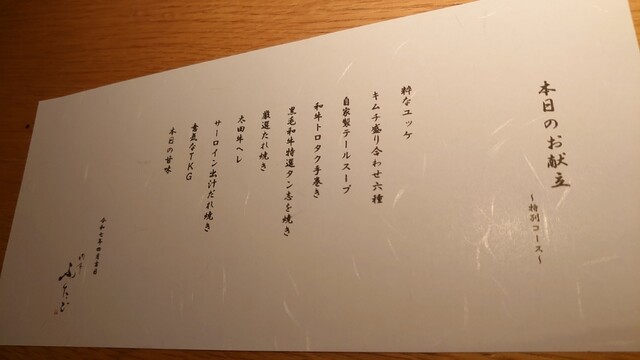 本日のお献立
～特別コース～
粋なユッケ
キムチ盛り合わせ六種
自家製テールスープ
和牛トロタク手巻き
黒毛和牛特選タン志を焼き
厳選たれ焼き
太田牛ヘレ
サーロイン出汁だれ焼き
意気なTKG
本日の甘味
令和七年四月吉日